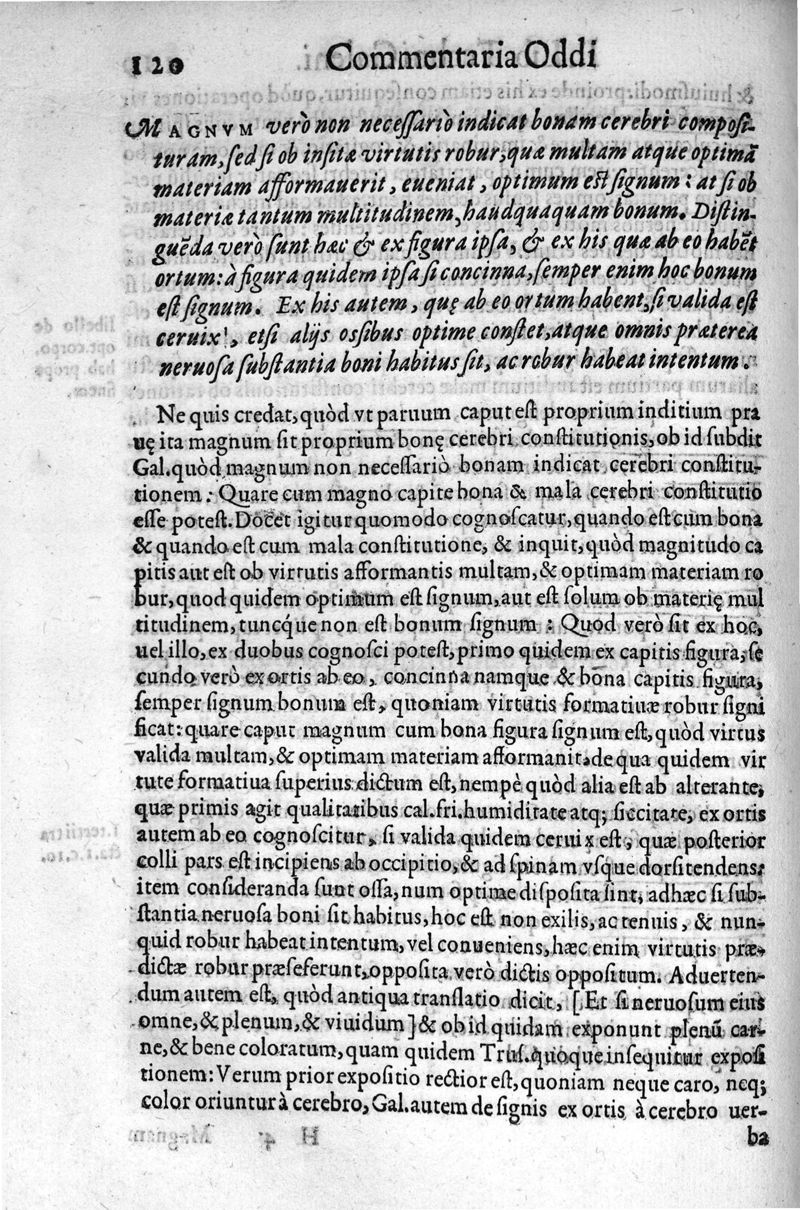 120 Commentaria Oddi
MAGNVM verò non necessariò indicat bonam cerebri composi-
turam, sed si ob insitæ virtutis robur, quæ multam atque optimā
materiam afformauerit, eueniat, optimum est signum: at si ob
materiæ tantum multitudinem, haudquaquam bonum. Distin-
guēda verò sunt hæc & ex figura ipsa, & ex his quæ ab eo habēt
ortum: à figura quidem ipsa si concinna, semper enim hoc bonum
est signum. Ex his autem, quę ab eo ortum habent, si valida est
ceruix, etsi alijs ossibus optime constet, atque omnis præterea
neruosa substantia boni habitus sit, ac robur habeat intentum.
Ne quis credat, quòd vt paruum caput est proprium inditium pra
uę ita magnum sit proprium bonę cerebri constitutionis, ob id subdit
Gal. quòd magnum non necessariò bonam indicat cerebri constitu-
tionem: Quare cum magno capite bona & mala cerebri constitutio
esse potest. Docet igitur quomodo cognoscatur, quando est cum bona
& quando est cum mala constitutione, & inquit, quòd magnitudo ca
pitis aut est ob virtutis afformantis multam, & optimam materiam ro
bur, quod quidem optimum est signum, aut est solum ob materię mul
titudinem, tuncq́ue non est bonum signum: Quod verò sit ex hoc,
uel illo, ex duobus cognosci potest, primo quidem ex capitis figura, se
cundo verò ex ortis ab eo, concinna namque & bona capitis figura,
semper signum bonum est, quoniam virtutis formatiuæ robur signi
ficat: quare caput magnum cum bona figura signum est, quòd virtus
valida multam, & optimam materiam afformauit, de qua quidem vir
tute formatiua superius dictum est, nempè quòd alia est ab alterante,
quæ primis agit qualitatibus cal. fri. humiditate atq; siccitate, ex ortis
autem ab eo cognoscitur, si valida quidem ceruix est, quæ posterior
colli pars est incipiens ab occipitio, & ad spinam vsque dorsi tendens:
item consideranda sunt ossa, num optime disposita sint, adhæc si sub-
stantia neruosa boni sit habitus, hoc est non exilis, ac tenuis, & nun-
quid robur habeat intentum, vel conueniens, hæc enim virtutis præ-
dictæ robur præseferunt, opposita verò dictis oppositum. Aduerten-
dum autem est, quòd antiqua translatio dicit, [Et si neruosum eius
omne, & plenum, & viuidum] & ob id quidam exponunt plenū car-
ne, & bene coloratum, quam quidem Trus. quoque insequitur exposi
tionem: Verum prior expositio rectior est, quoniam neque caro, neq;
color oriuntur à cerebro, Gal. autem de signis ex ortis à cerebro uer-
ba